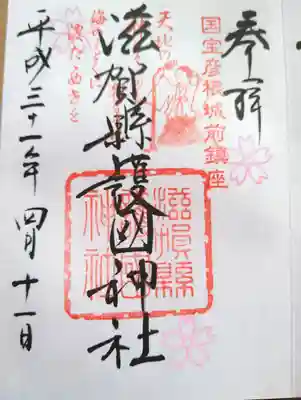 奉拝
国宝彦根城前鎮座
滋賀縣護國神社
滋賀縣
護國
神社
平成三十一年四月十一日